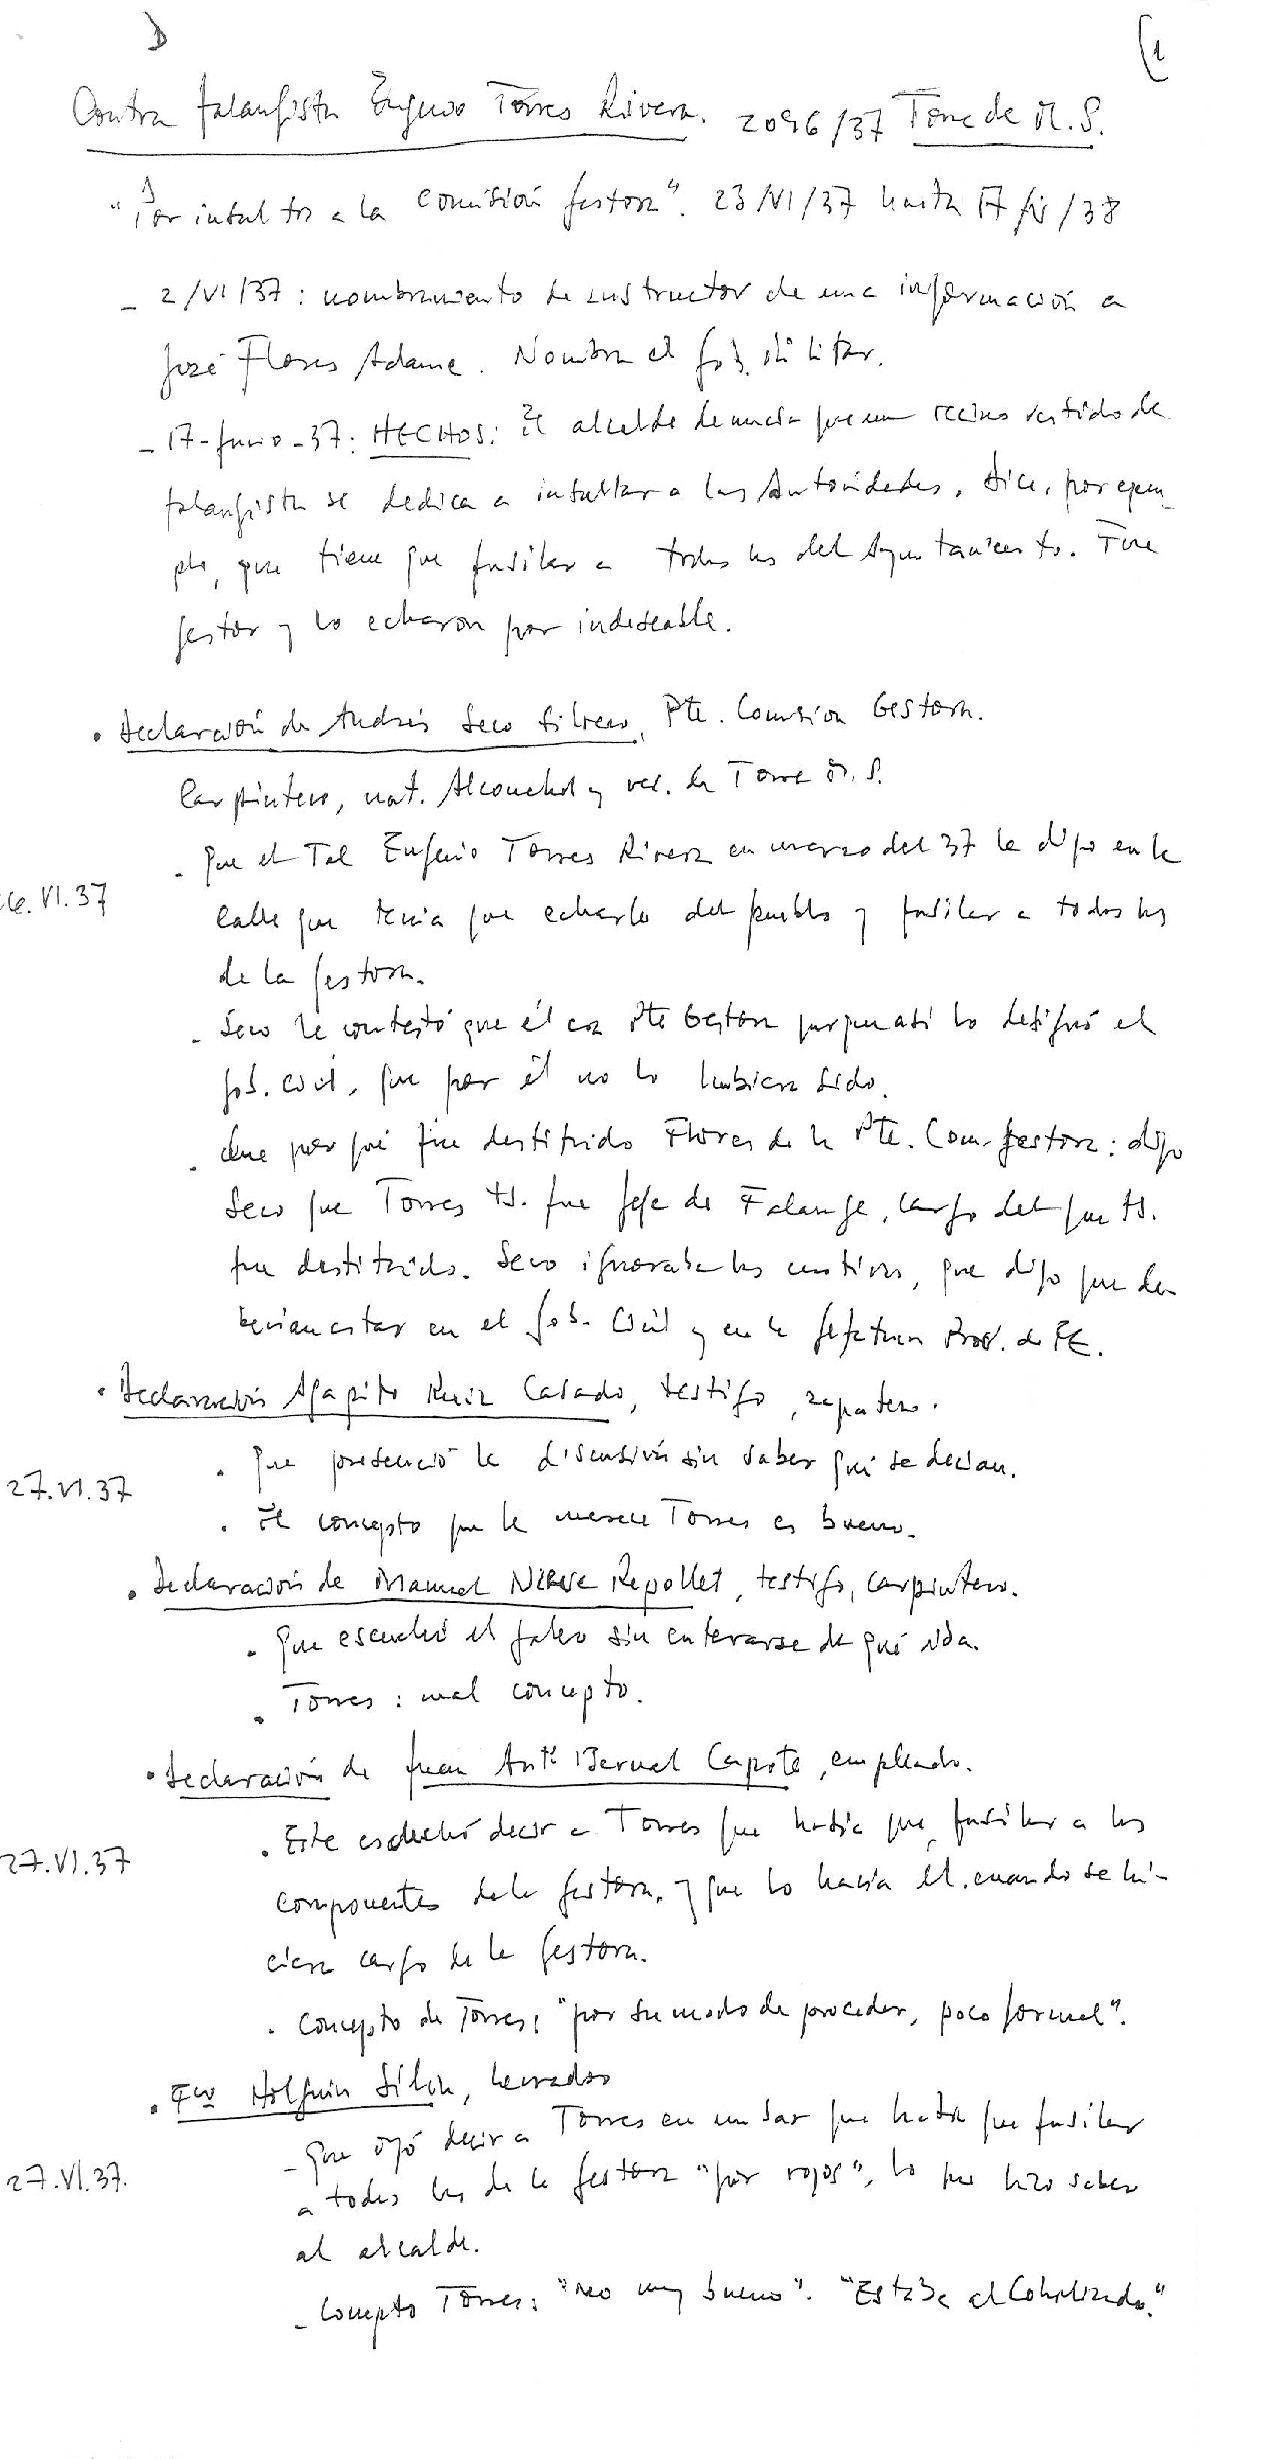 D
1
Contra falangista Eugenio Torres Rivera. 2096/37 Torre de M.S.
"Por insultos a la comisión gestora". 23/VI/37 hasta 17 /38
- 2/VI/37: nombramiento de instructor de una información a
José Flores Adame. Nombra el gob. militar.
- 17-junio-37: HECHOS: El alcalde denuncia que un vecino vestido de
falangista se dedica a insultar a las Autoridades, dice, por ejem-
plo, que tiene que fusilar a todos los del Ayuntamiento. Fue
gestor y lo echaron por indeseable.
• Declaración de Andrés Seco Silvero, Pte. Comisión Gestora.
Carpintero, nat. Alconchel y vec. de Torre M.S.
- Que el tal Eugenio Torres Rivera en marzo del 37 le dijo en la
26.VI.37
calle que tenía que echarlo del pueblo y fusilar a todos los
de la gestora.
- Seco le contestó que él era Pte Gestora porque así lo designó el
gob. civil, que por él no lo hubiera sido.
- Que por qué fue destituido Flores de la Pte. Com. gestora: dijo
Seco que Torres tb. fue jefe de Falange, cargo del que tb.
fue destituido. Seco ignoraba los motivos, que dijo que de-
berían estar en el gob. civil y en la jefatura Prov. de FE.
• Declaración Agapito Ruiz Casado, testigo, zapatero.
• Que presenció la discusión sin saber qué se decían.
27.VI.37
• El concepto que le merece Torres es bueno.
• Declaración de Manuel Nieve Repollet, testigo, carpintero.
• Que escuchó el jaleo sin enterarse de qué iba.
• Torres: mal concepto.
• Declaración de Juan Antº Bernal Capote, empleado.
• Este escuchó decir a Torres que había que fusilar a los
27.VI.37
componentes de la gestora, y que lo haría él cuando se hi-
ciera cargo de la gestora.
• Concepto de Torres: "por su modo de proceder, poco formal".
• Fco Holguín Silva, herrador
- Que oyó decir a Torres en un bar que había que fusilar
27.VI.37.
a todos los de la gestora "por rojos", lo que hizo saber
al alcalde.
- Concepto Torres: "no muy bueno". "Estaba alcoholizado."